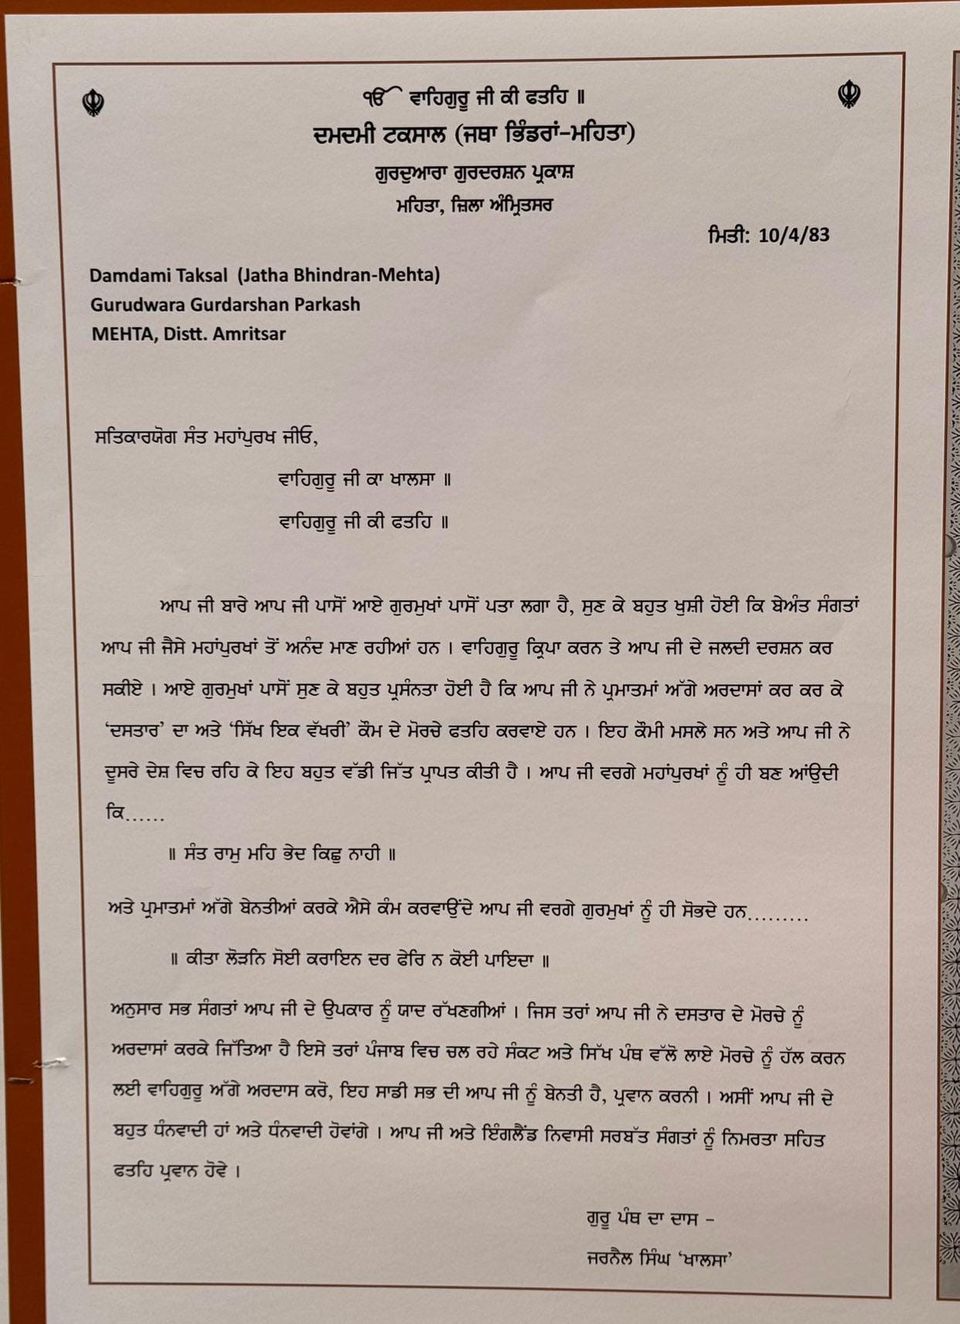 ੴ ਵਾਹਿਗੁਰੂ ਜੀ ਕੀ ਫਤਹਿ ॥
ਦਮਦਮੀ ਟਕਸਾਲ (ਜਥਾ ਭਿੰਡਰਾਂ-ਮਹਿਤਾ)
ਗੁਰਦੁਆਰਾ ਗੁਰਦਰਸ਼ਨ ਪ੍ਰਕਾਸ਼
ਮਹਿਤਾ, ਜ਼ਿਲਾ ਅੰਮ੍ਰਿਤਸਰ
ਮਿਤੀ: 10/4/83
Damdami Taksal (Jatha Bhindran-Mehta)
Gurudwara Gurdarshan Parkash
MEHTA, Distt. Amritsar
ਸਤਿਕਾਰਯੋਗ ਸੰਤ ਮਹਾਂਪੁਰਖ ਜੀਓ,
ਵਾਹਿਗੁਰੂ ਜੀ ਕਾ ਖਾਲਸਾ ॥
ਵਾਹਿਗੁਰੂ ਜੀ ਕੀ ਫਤਹਿ ॥
ਆਪ ਜੀ ਬਾਰੇ ਆਪ ਜੀ ਪਾਸੋਂ ਆਏ ਗੁਰਮੁਖਾਂ ਪਾਸੋਂ ਪਤਾ ਲਗਾ ਹੈ, ਸੁਣ ਕੇ ਬਹੁਤ ਖੁਸ਼ੀ ਹੋਈ ਕਿ ਬੇਅੰਤ ਸੰਗਤਾਂ
ਆਪ ਜੀ ਜੈਸੇ ਮਹਾਂਪੁਰਖਾਂ ਤੋਂ ਅਨੰਦ ਮਾਣ ਰਹੀਆਂ ਹਨ । ਵਾਹਿਗੁਰੂ ਕ੍ਰਿਪਾ ਕਰਨ ਤੇ ਆਪ ਜੀ ਦੇ ਜਲਦੀ ਦਰਸ਼ਨ ਕਰ
ਸਕੀਏ । ਆਏ ਗੁਰਮੁਖਾਂ ਪਾਸੋਂ ਸੁਣ ਕੇ ਬਹੁਤ ਪ੍ਰਸੰਨਤਾ ਹੋਈ ਹੈ ਕਿ ਆਪ ਜੀ ਨੇ ਪ੍ਰਮਾਤਮਾਂ ਅੱਗੇ ਅਰਦਾਸਾਂ ਕਰ ਕਰ ਕੇ
‘ਦਸਤਾਰ’ ਦਾ ਅਤੇ ‘ਸਿੱਖ ਇਕ ਵੱਖਰੀ’ ਕੌਮ ਦੇ ਮੋਰਚੇ ਫਤਹਿ ਕਰਵਾਏ ਹਨ । ਇਹ ਕੌਮੀ ਮਸਲੇ ਸਨ ਅਤੇ ਆਪ ਜੀ ਨੇ
ਦੂਸਰੇ ਦੇਸ਼ ਵਿਚ ਰਹਿ ਕੇ ਇਹ ਬਹੁਤ ਵੱਡੀ ਜਿੱਤ ਪ੍ਰਾਪਤ ਕੀਤੀ ਹੈ । ਆਪ ਜੀ ਵਰਗੇ ਮਹਾਂਪੁਰਖਾਂ ਨੂੰ ਹੀ ਬਣ ਆਂਉਦੀ
ਕਿ......
॥ ਸੰਤ ਰਾਮੁ ਮਹਿ ਭੇਦ ਕਿਛੁ ਨਾਹੀ ॥
ਅਤੇ ਪ੍ਰਮਾਤਮਾਂ ਅੱਗੇ ਬੇਨਤੀਆਂ ਕਰਕੇ ਐਸੇ ਕੰਮ ਕਰਵਾਉਂਦੇ ਆਪ ਜੀ ਵਰਗੇ ਗੁਰਮੁਖਾਂ ਨੂੰ ਹੀ ਸੋਭਦੇ ਹਨ.........
॥ ਕੀਤਾ ਲੋੜਨਿ ਸੋਈ ਕਰਾਇਨ ਦਰ ਫੇਰਿ ਨ ਕੋਈ ਪਾਇਦਾ ॥
ਅਨੁਸਾਰ ਸਭ ਸੰਗਤਾਂ ਆਪ ਜੀ ਦੇ ਉਪਕਾਰ ਨੂੰ ਯਾਦ ਰੱਖਣਗੀਆਂ । ਜਿਸ ਤਰਾਂ ਆਪ ਜੀ ਨੇ ਦਸਤਾਰ ਦੇ ਮੋਰਚੇ ਨੂੰ
ਅਰਦਾਸਾਂ ਕਰਕੇ ਜਿੱਤਿਆ ਹੈ ਇਸੇ ਤਰਾਂ ਪੰਜਾਬ ਵਿਚ ਚਲ ਰਹੇ ਸੰਕਟ ਅਤੇ ਸਿੱਖ ਪੰਥ ਵੱਲੋ ਲਾਏ ਮੋਰਚੇ ਨੂੰ ਹੱਲ ਕਰਨ
ਲਈ ਵਾਹਿਗੁਰੂ ਅੱਗੇ ਅਰਦਾਸ ਕਰੋ, ਇਹ ਸਾਡੀ ਸਭ ਦੀ ਆਪ ਜੀ ਨੂੰ ਬੇਨਤੀ ਹੈ, ਪ੍ਰਵਾਨ ਕਰਨੀ । ਅਸੀਂ ਆਪ ਜੀ ਦੇ
ਬਹੁਤ ਧੰਨਵਾਦੀ ਹਾਂ ਅਤੇ ਧੰਨਵਾਦੀ ਹੋਵਾਂਗੇ । ਆਪ ਜੀ ਅਤੇ ਇੰਗਲੈਂਡ ਨਿਵਾਸੀ ਸਰਬੱਤ ਸੰਗਤਾਂ ਨੂੰ ਨਿਮਰਤਾ ਸਹਿਤ
ਫਤਹਿ ਪ੍ਰਵਾਨ ਹੋਵੇ ।
ਗੁਰੂ ਪੰਥ ਦਾ ਦਾਸ –
ਜਰਨੈਲ ਸਿੰਘ ‘ਖਾਲਸਾ’